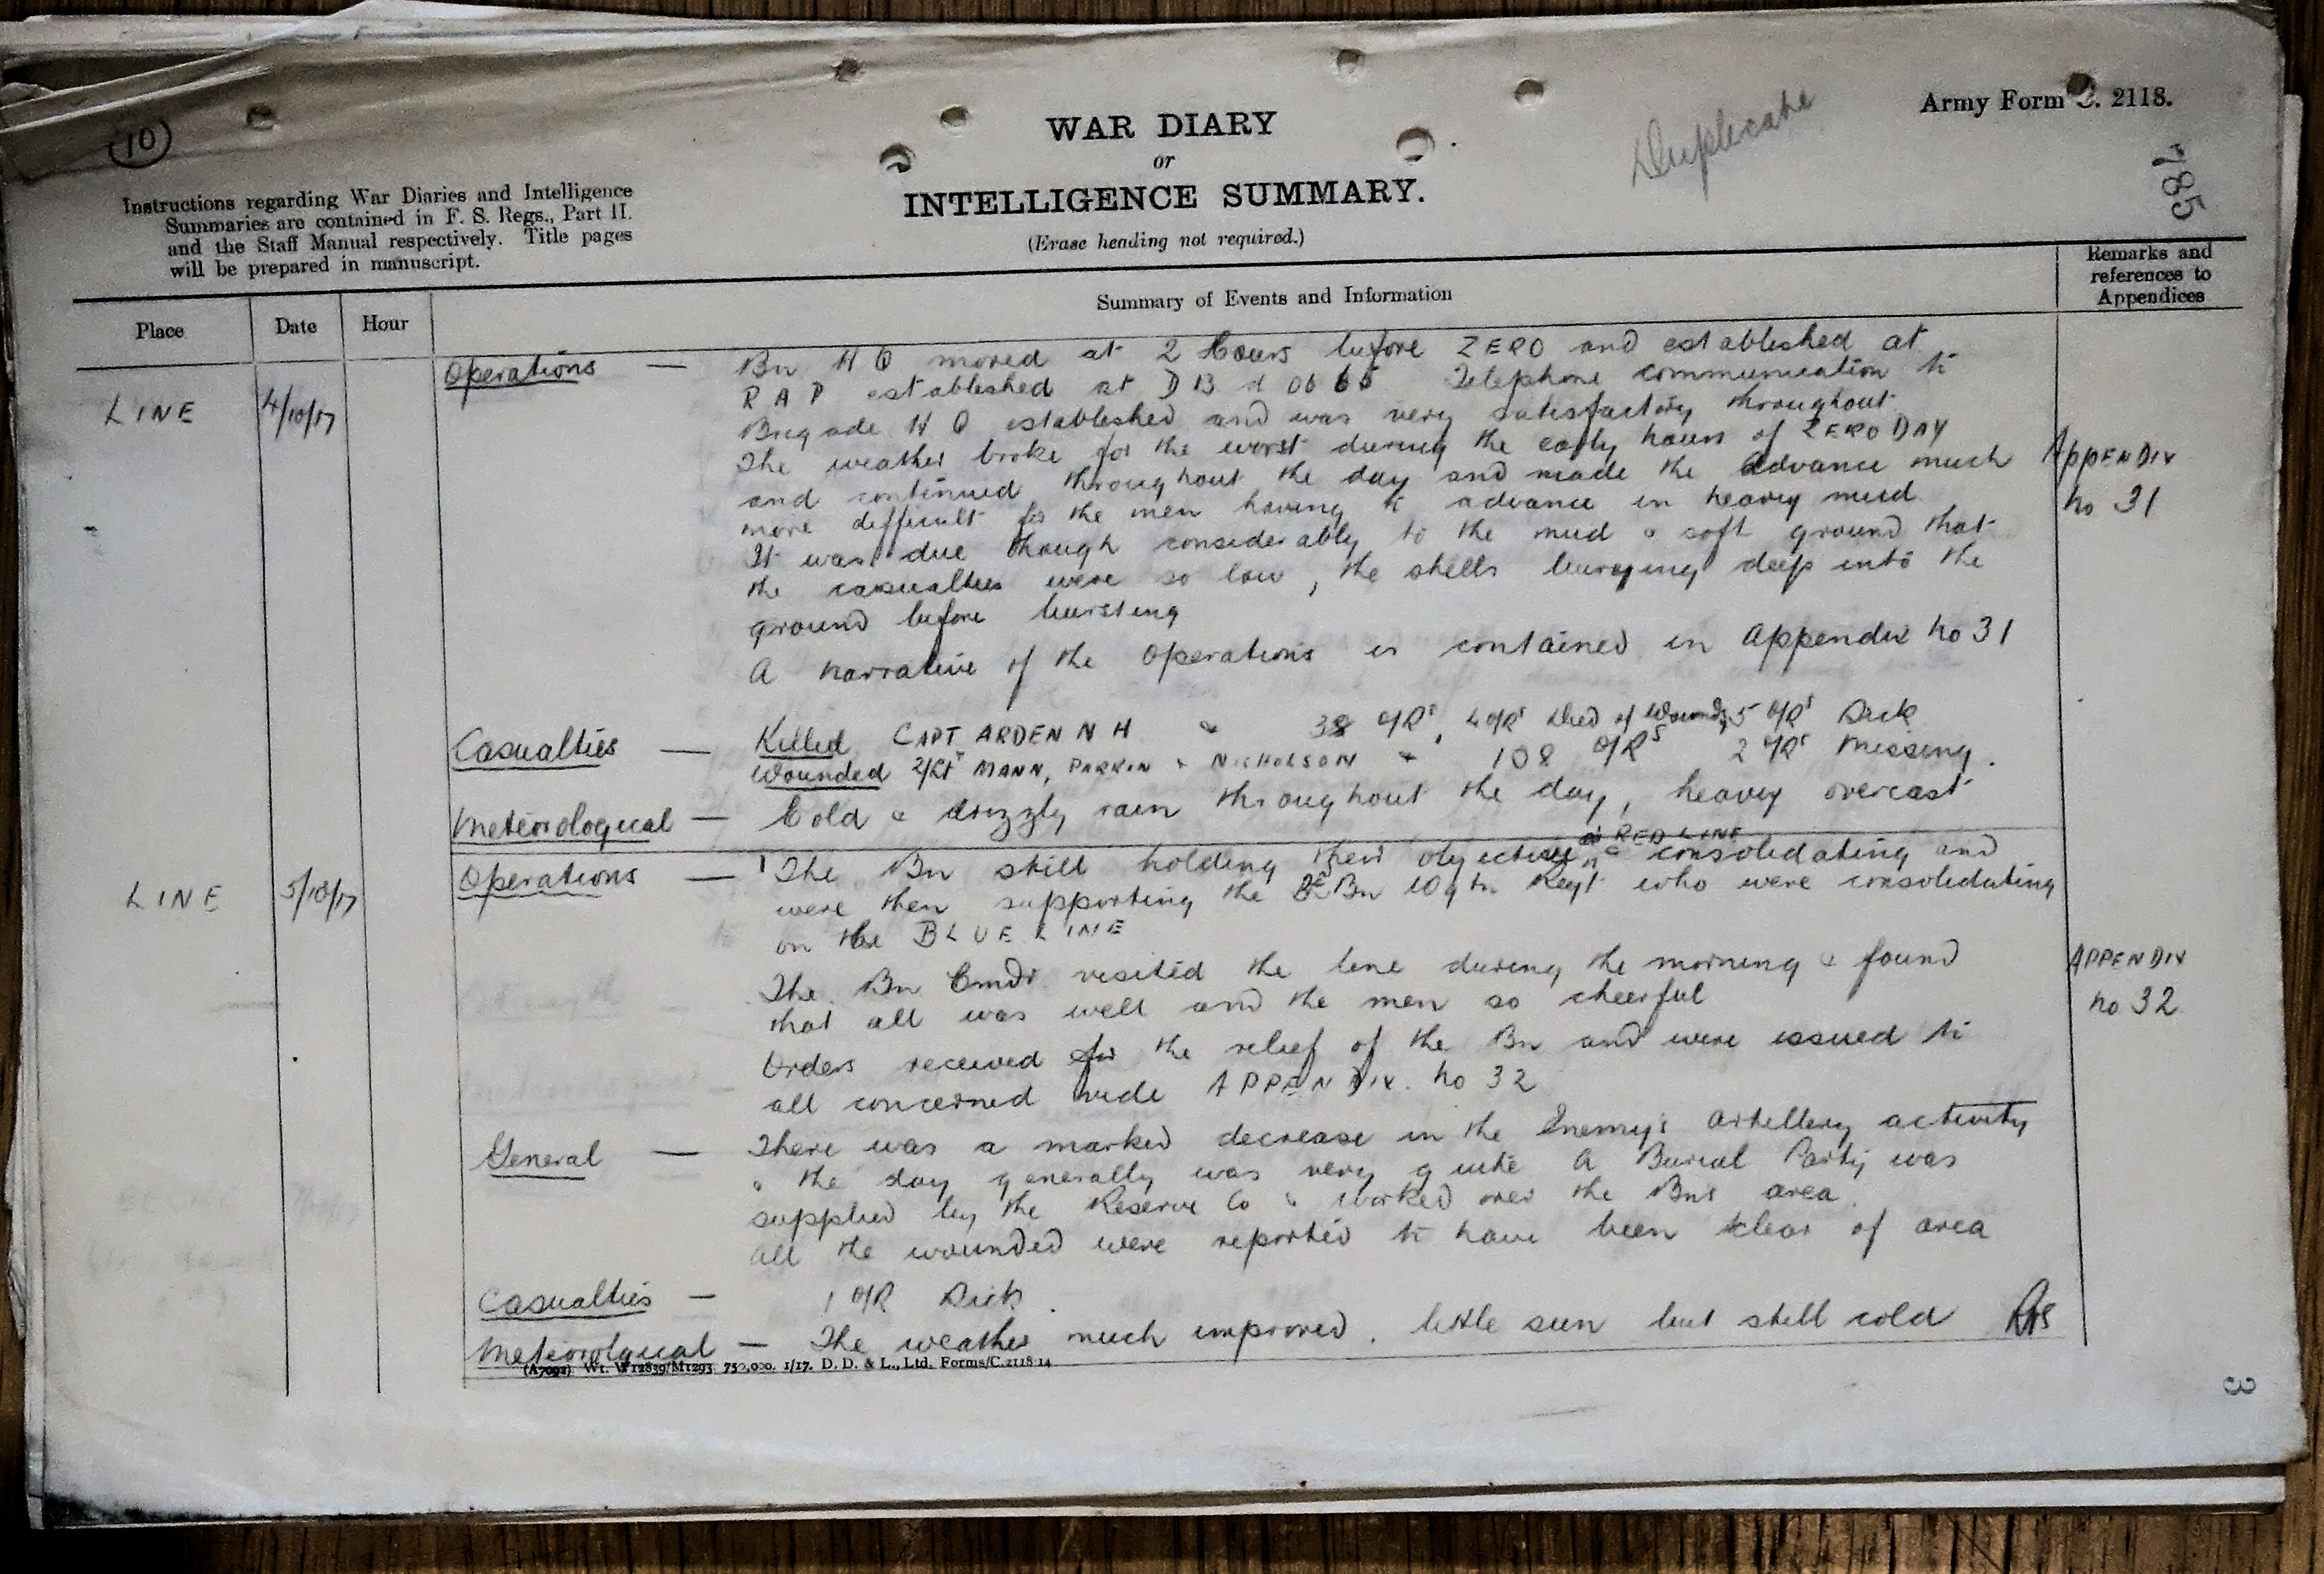 10
WAR DIARY
or
INTELLIGENCE SUMMARY.
(Erase heading not required.)
Duplicate
Army Form C. 2118.
785
Instructions regarding War Diaries and Intelligence
Summaries are contained in F. S. Regs., Part II.
and the Staff Manual respectively. Title pages
will be prepared in manuscript.
Place
Date
Hour
Summary of Events and Information
Remarks and
references to
Appendices
LINE 4/10/17
Operations — Bn H Q moved at 2 Hours before ZERO and established at
R A P established at D 13 d 06 65 Telephone communication to
Brigade H Q established and was very satisfactory throughout
The weather broke for the worst during the early hours of ZERO DAY
and continued throughout the day and made the advance much
more difficult for the men having to advance in heavy mud
It was due though considerably to the mud & soft ground that
the casualties were so low, the shells burying deep into the
ground before bursting
A narrative of the Operations is contained in Appendix No 31
APPENDIX
No 31
Casualties — Killed CAPT ARDEN N H & 38 O/Rs, 4 O/Rs Died of Wounds, 5 O/Rs Sick
Wounded 2/Lts MANN, PARKIN & NICHOLSON & 108 O/Rs 2 O/Rs Missing.
Meteorological — Cold & drizzly rain throughout the day, heavy overcast
LINE 5/10/17
Operations — The Bn still holding their objective RED LINE & consolidating and
were then supporting the Bn Regt who were consolidating
on the BLUE LINE
The Bn Cmdr visited the line during the morning & found
that all was well and the men so cheerful
Orders received for the relief of the Bn and were issued to
all concerned vide APPENDIX No 32
APPENDIX
No 32
General — There was a marked decrease in the Enemy's Artillery activity
& the day generally was very quite A Burial Party was
supplied by the Reserve Co & worked over the Bns area.
all the wounded were reported to have been clear of area
Casualties — 1 O/R Sick.
Meteorolgical — The weather much improved. little sun but still cold
(A7092) Wt. W12839/M1293 750,000. 1/17. D. D. & L., Ltd. Forms/C.2118/14
3